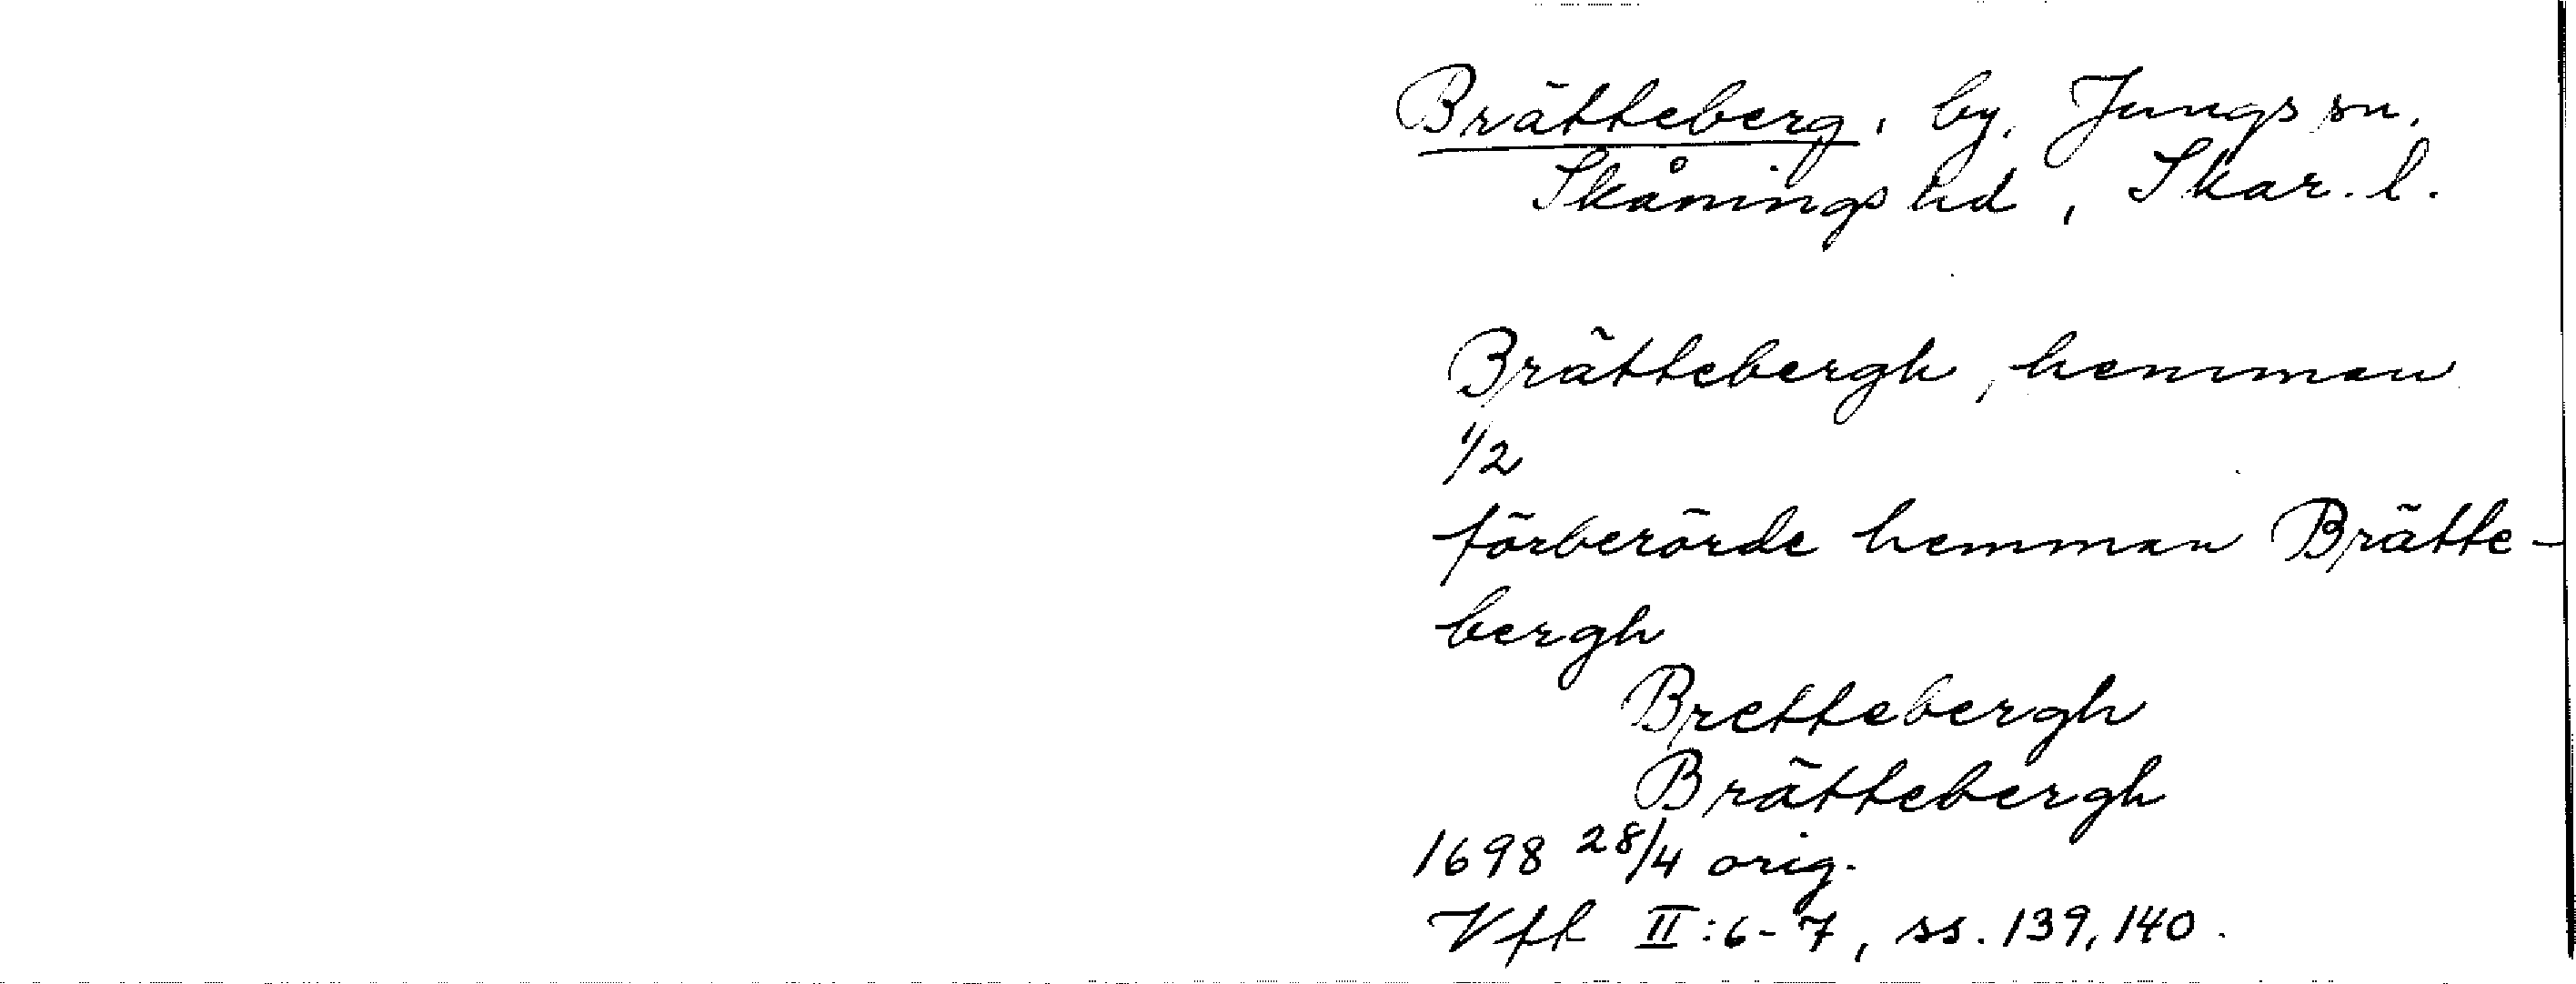 Brätteberg, by, Jungs sn,
Skånings hd, Skar. l.
Brättebergh, hemman
1/2
förberörde hemman Brätte-
bergh
Brettebergh
Brättebergh
1698 28/4 orig.
Vft II:6-7, ss. 139, 140.